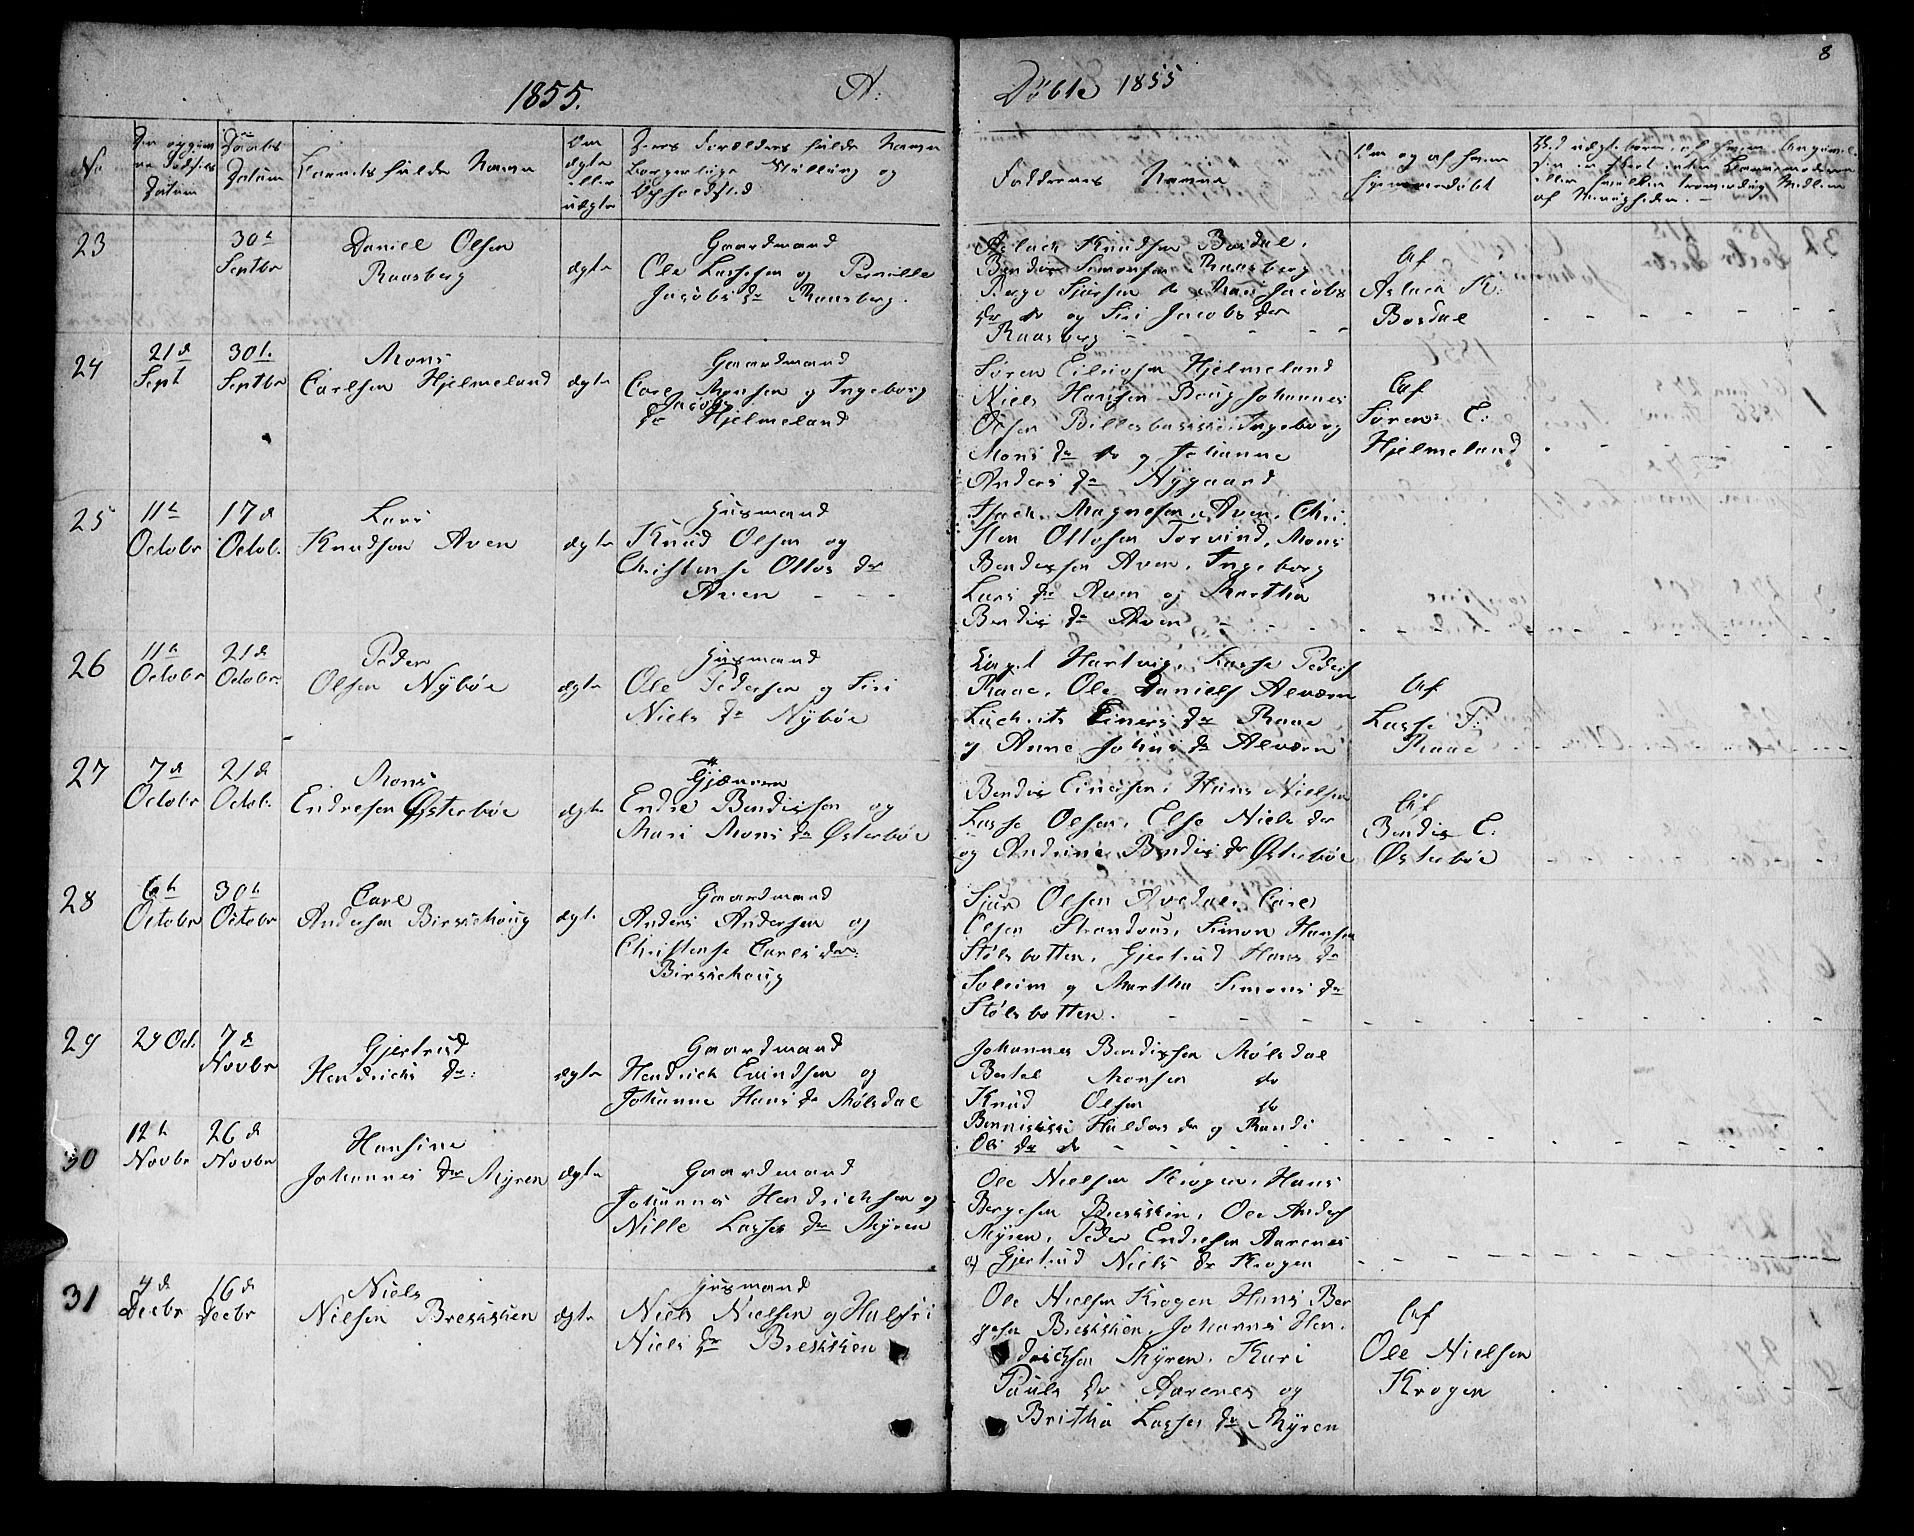 8
1855.
A:
Døbte 1855
No
Datum
Daabs
Datum
Barnets fulde Navn
Om
ægte
eller
uægte
Deres Forældres fulde Navn
Borgerlige Stilling og
Opholdssted
Faddernes Navne
Om og af hvem
hjemmedøbt
23
30te
Septbr
Daniel Olsen
Raasberg
ægte
Gaardmand
Ole Lassesen og Pernille
Jacobs dr Raasberg.
Aslack Knudsen Bosdal,
Bendix Simonsen Raasberg
Jacobs
dr do og Siri Jacobs dr
Raasberg
Af
Aslack K:
Bosdal
24
21d
Sept
30t.
Septbr
Mons
Carlsen Hjelmeland
ægte
Gaardmand
Carl Monsen og Ingeborg
Jacobs
dr Hjelmeland
Søren Hjelmeland
Niels Hansen Johannes
Olsen Ingeborg
Mons dr do og Johanne
Anders dr Nygaard
Af
Søren E:
Hjelmeland
25
11te
Octobr
17d
Octob.
Lars
Knudsen Aven
ægte
Husmand
Knud Olsen og
Christense Ottos dr
Aven
Magnesen Aven, Chri
sten Ottosen Torvind, Mons
Bendixsen Aven, Ingeborg
Lars dr Aven og Martha
Bendix dr Aven
26
11te
Octobr
21d
Octobr.
Peder
Olsen Nybøe
ægte
Husmand
Ole Pedersen og Siri
Niels dr Nybøe
Hartvig, Lasse Peders
Raae, Ole Daniels Alværn
Einers dr Raae
og Anne Johns dr Alværn
Af
Lasse P:
Raae
27
7d
Octobr
21d
Octob.
Mons
Endresen Østerbøe
ægte
Endre Bendixsen og
Mari Mons dr Østerbøe
Bendix Einersen, Hans Nielsen
Lasse Olsen, Else Niels dr
og Andrine Bendix dr Østerbøe
Af
Bendix E:
Østerbøe
28
6te
Octobr
30te
Octobr
Carl
Andersen Birkehoug
ægte
Gaardmand
Anders Andersen og
Christense Carls dr:
Birkehoug
Sjur Olsen Avedal, Carl
Olsen Simon Hansen
Stølsbotten, Gjertrud Hans dr
Soleim og Martha Simons dr
Stølsbotten.
29
29 Oct.
7d
Novbr
Gjertrud
Hendricks dr:
ægte
Gaardmand
Hendrick Evindsen og
Johanne Hans dr Mølsdal
Johannes Bendixsen Mølsdal
Bertel Monsen do
Knud Olsen do
Haldor dr og Randi
Ols dr do
30
12te
Novbr
26d
Novbr
Hansine
Johannes dr Myren
ægte
Gaardmand
Johannes Hendricksen og
Nille Lasses dr Myren
Ole Nielsen Krogen, Hans
Bergesen Brekken, Ole Anders
Myren, Peder Endresen Aarenes
og Gjertrud Niels dr Krogen
31
4d
Decbr
16d
Decbr
Niels
Nielsen Brekken
ægte
Husmand
Niels Nielsen og
Niels dr Brekken
Ole Nielsen Krogen, Hans Ber
gesen Brekken, Johannes Hen
dricksen Myren, Kari
Pauls dr Aarenes og
Britha Lasses dr Myren
Af
Ole Nielsen
Krogen